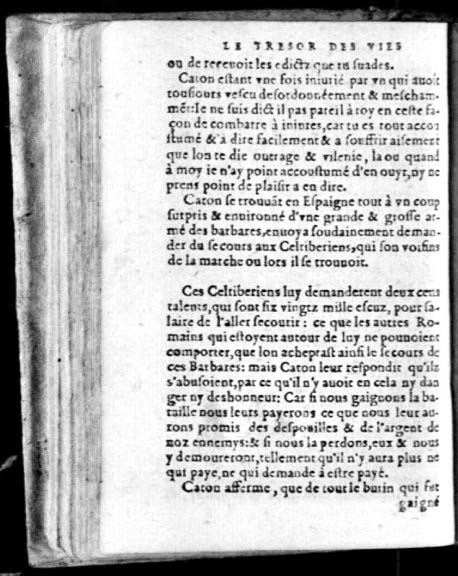 LE TRESOR DES VIES
ou de recevoir les edictz que tu suades.
Caton estant vne fois iniurié par vn qui auoit
tousiours vescu desordonnéement & mescham-
mét: Ie ne suis dict il pas pareil à toy en ceste fa-
çon de combatre à iniures, car tu es tout accou
stumé & à dire facilement & a souffrir aisement
que lon te die outrage & vilenie, la ou quand
à moy ie n'ay point accoustumé d'en ouyr, ny ne
prens point de plaisir a en dire.
Caton se trouuāt en Espaigne tout à vn coup
surpris & enuironné d'vne grande & grosse ar-
mé des barbares, enuoya soudainement deman-
der du secours aux Celtiberiens, qui son voisins
de la marche ou lors il se trouuoit.
Ces Celtiberiens luy demanderent deux cens
talents, qui sont six vingtz mille escuz, pour sa-
laire de l'aller secourir: ce que les autres Ro-
mains qui estoyent autour de luy ne pouuoient
comporter, que lon acheptast ainsi le secours de
ces Barbares: mais Caton leur respondit qu'ilz
s'abusoient, par ce qu'il n'y auoit en cela ny dan
ger ny deshonneur: Car si nous gaignons la ba-
taille nous leurs payerons ce que nous leur au-
rons promis des despouilles & de l'argent de
noz ennemys: & si nous la perdons, eux & nous
y demoureront, tellement qu'il n'y aura plus ne
qui paye, ne qui demande à estre payé.
Caton afferme, que de tout le butin qui fut
gaigné